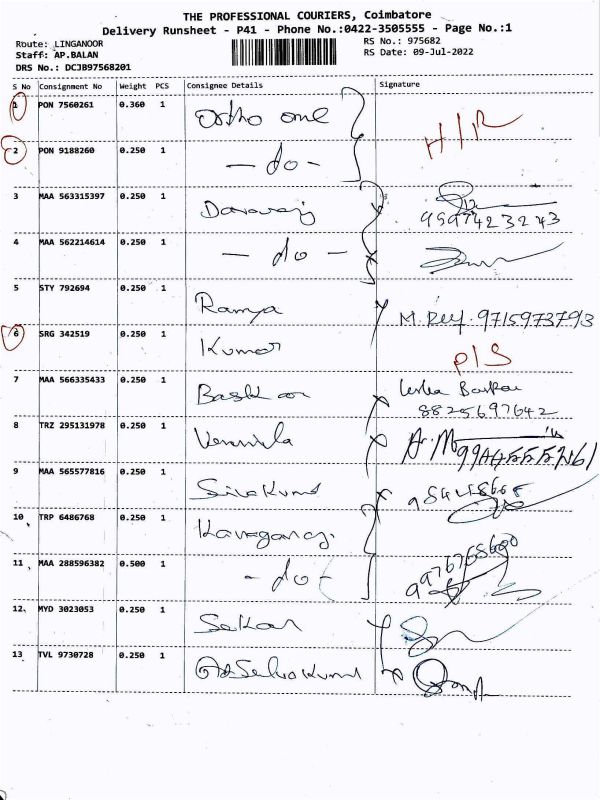 THE PROFESSIONAL COURIERS, Coimbatore
Delivery Runsheet - P41 - Phone No.:0422-3505555 - Page No.:1
Route: LINGANOOR
RS No.: 975682
Staff: AP.BALAN
RS Date: 09-Jul-2022
DRS No.: DCJB97568201
S No Consignment No Weight PCS Consignee Details Signature
1 PON 7560261 0.360 1 Ortho one
H/R
2 PON 9188260 0.250 1 - do -
3 MAA 563315397 0.250 1
4 MAA 562214614 0.250 1 - do -
5 STY 792694 0.250 1 Ramya 9715973793
6 SRG 342519 0.250 1 Kumar P/S
7 MAA 566335433 0.250 1 Baskar
8825697642
8 TRZ 295131978 0.250 1
9 MAA 565577816 0.250 1
10 TRP 6486768 0.250 1
11 MAA 288596382 0.500 1 - do -
12 MYD 3023053 0.250 1 Sekar
13 TVL 9730728 0.250 1